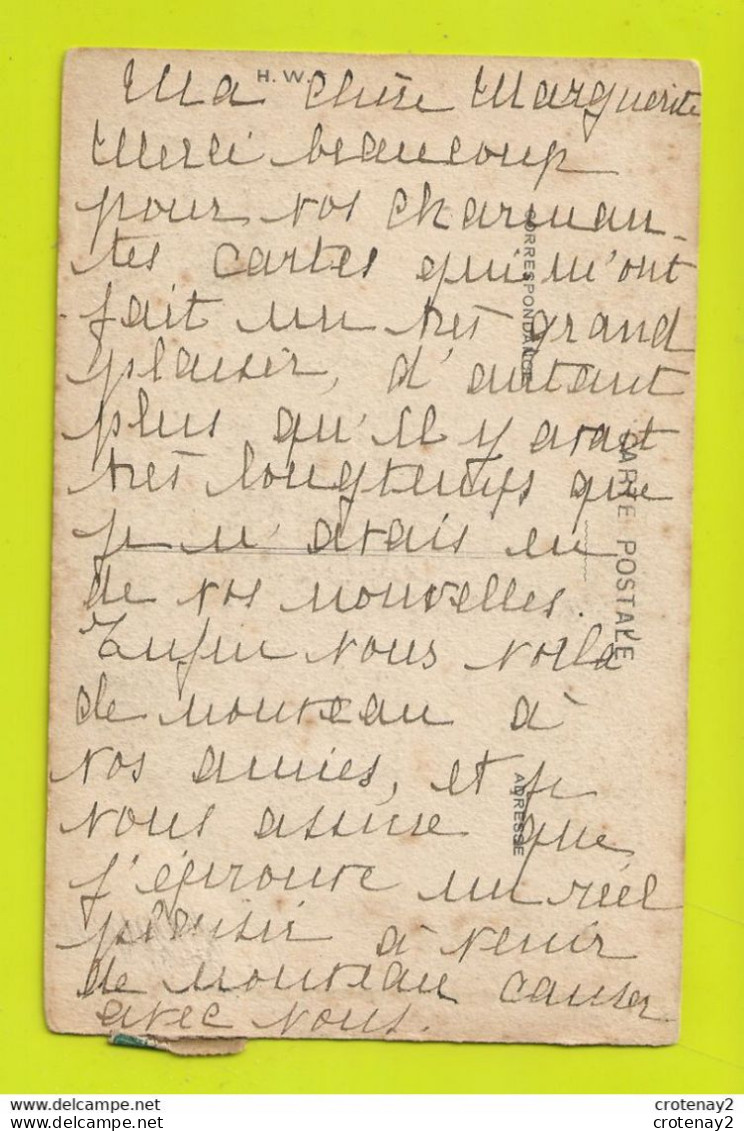 H. W.
Ma chère Marguerite
Merci beaucoup
pour vos charman-
tes cartes qui m'ont
fait un très grand
plaisir, d'autant
plus qu'il y avait
très longtemps que
je n'avais eu
de vos nouvelles.
Enfin vous voilà
de nouveau à
vos amies, et je
vous assure que
j'éprouve un réel
plaisir à venir
de nouveau causer
avec vous.
CORRESPONDANCE
CARTE POSTALE
ADRESSE
www.delcampe.net
www.delcampe.net
crotenay2
crotenay2